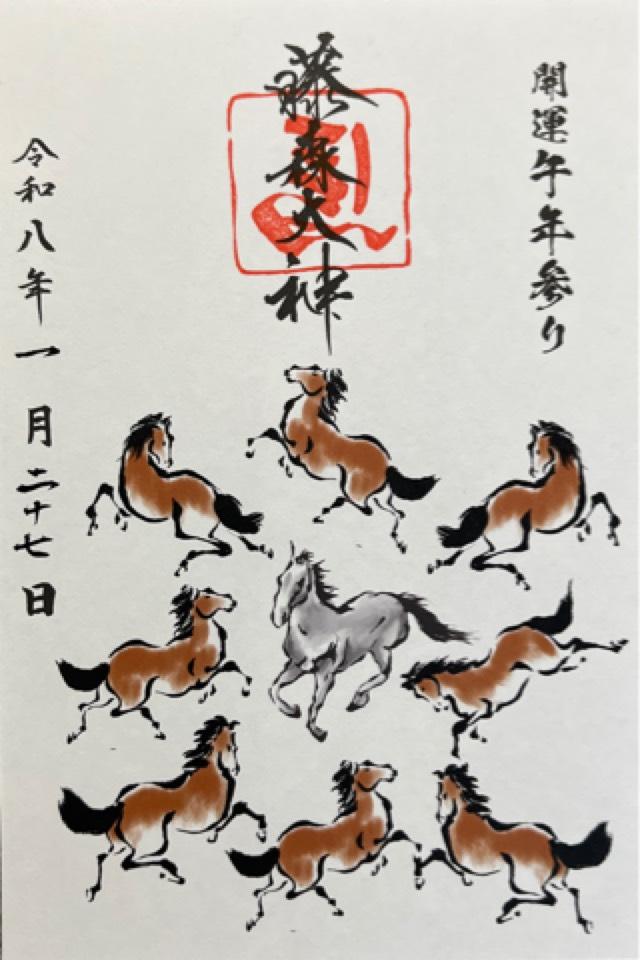 開運午年参り
藤森大神
令和八年一月二十七日